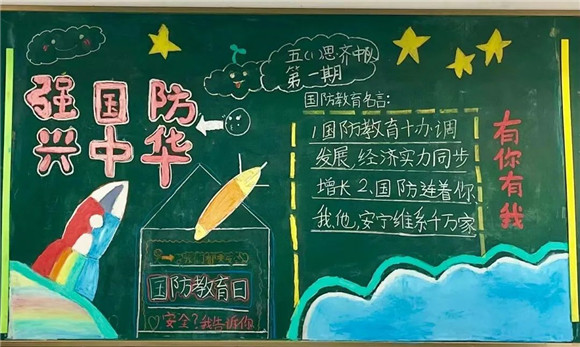 强国防
兴中华
五(1)思齐中队
第一期
国防教育名言:
1国防教育协调
发展,经济实力同步
增长2.国防连着你
我.他,安宁维系千万家
有你有我
国防教育日
安全?我告诉你